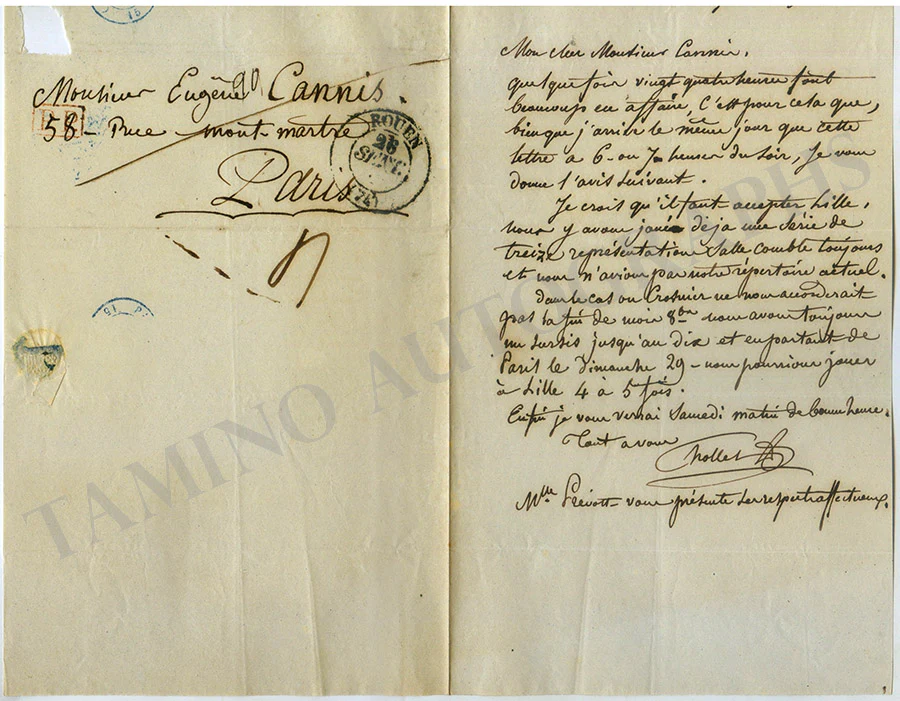 Monsieur Eugène Cannis.
58 - Rue - mont-martre
Paris
ROUEN
26
SEPT.
(74)
Mon cher Monsieur Cannis,
quelque fois vingt quatre heures font
beaucoup en affaire, C'est pour cela que,
bien que j'arrive le même jour que cette
lettre a 6 - ou 7 heures du soir, Je vous
donne l'avis suivant.
Je crois qu'il faut accepter Lille,
nous y avons joué déja une série de
treize représentations Salle comble toujours
et nous n'avions pas notre répertoire actuel.
Dans le cas ou Crosnier ne nous accorderait
pas la fin de mois 8bre nous avons toujours
un sursis jusqu'au dix et en partant de
Paris le Dimanche 29 - nous pourrions jouer
à Lille 4 à 5 fois.
Enfin je vous verrai Samedi matin de bonne heure.
Tout a vous
Chollet
Mlle Prévost - vous présente ses respects affectueux.
TAMINO AUTOGRAPHS